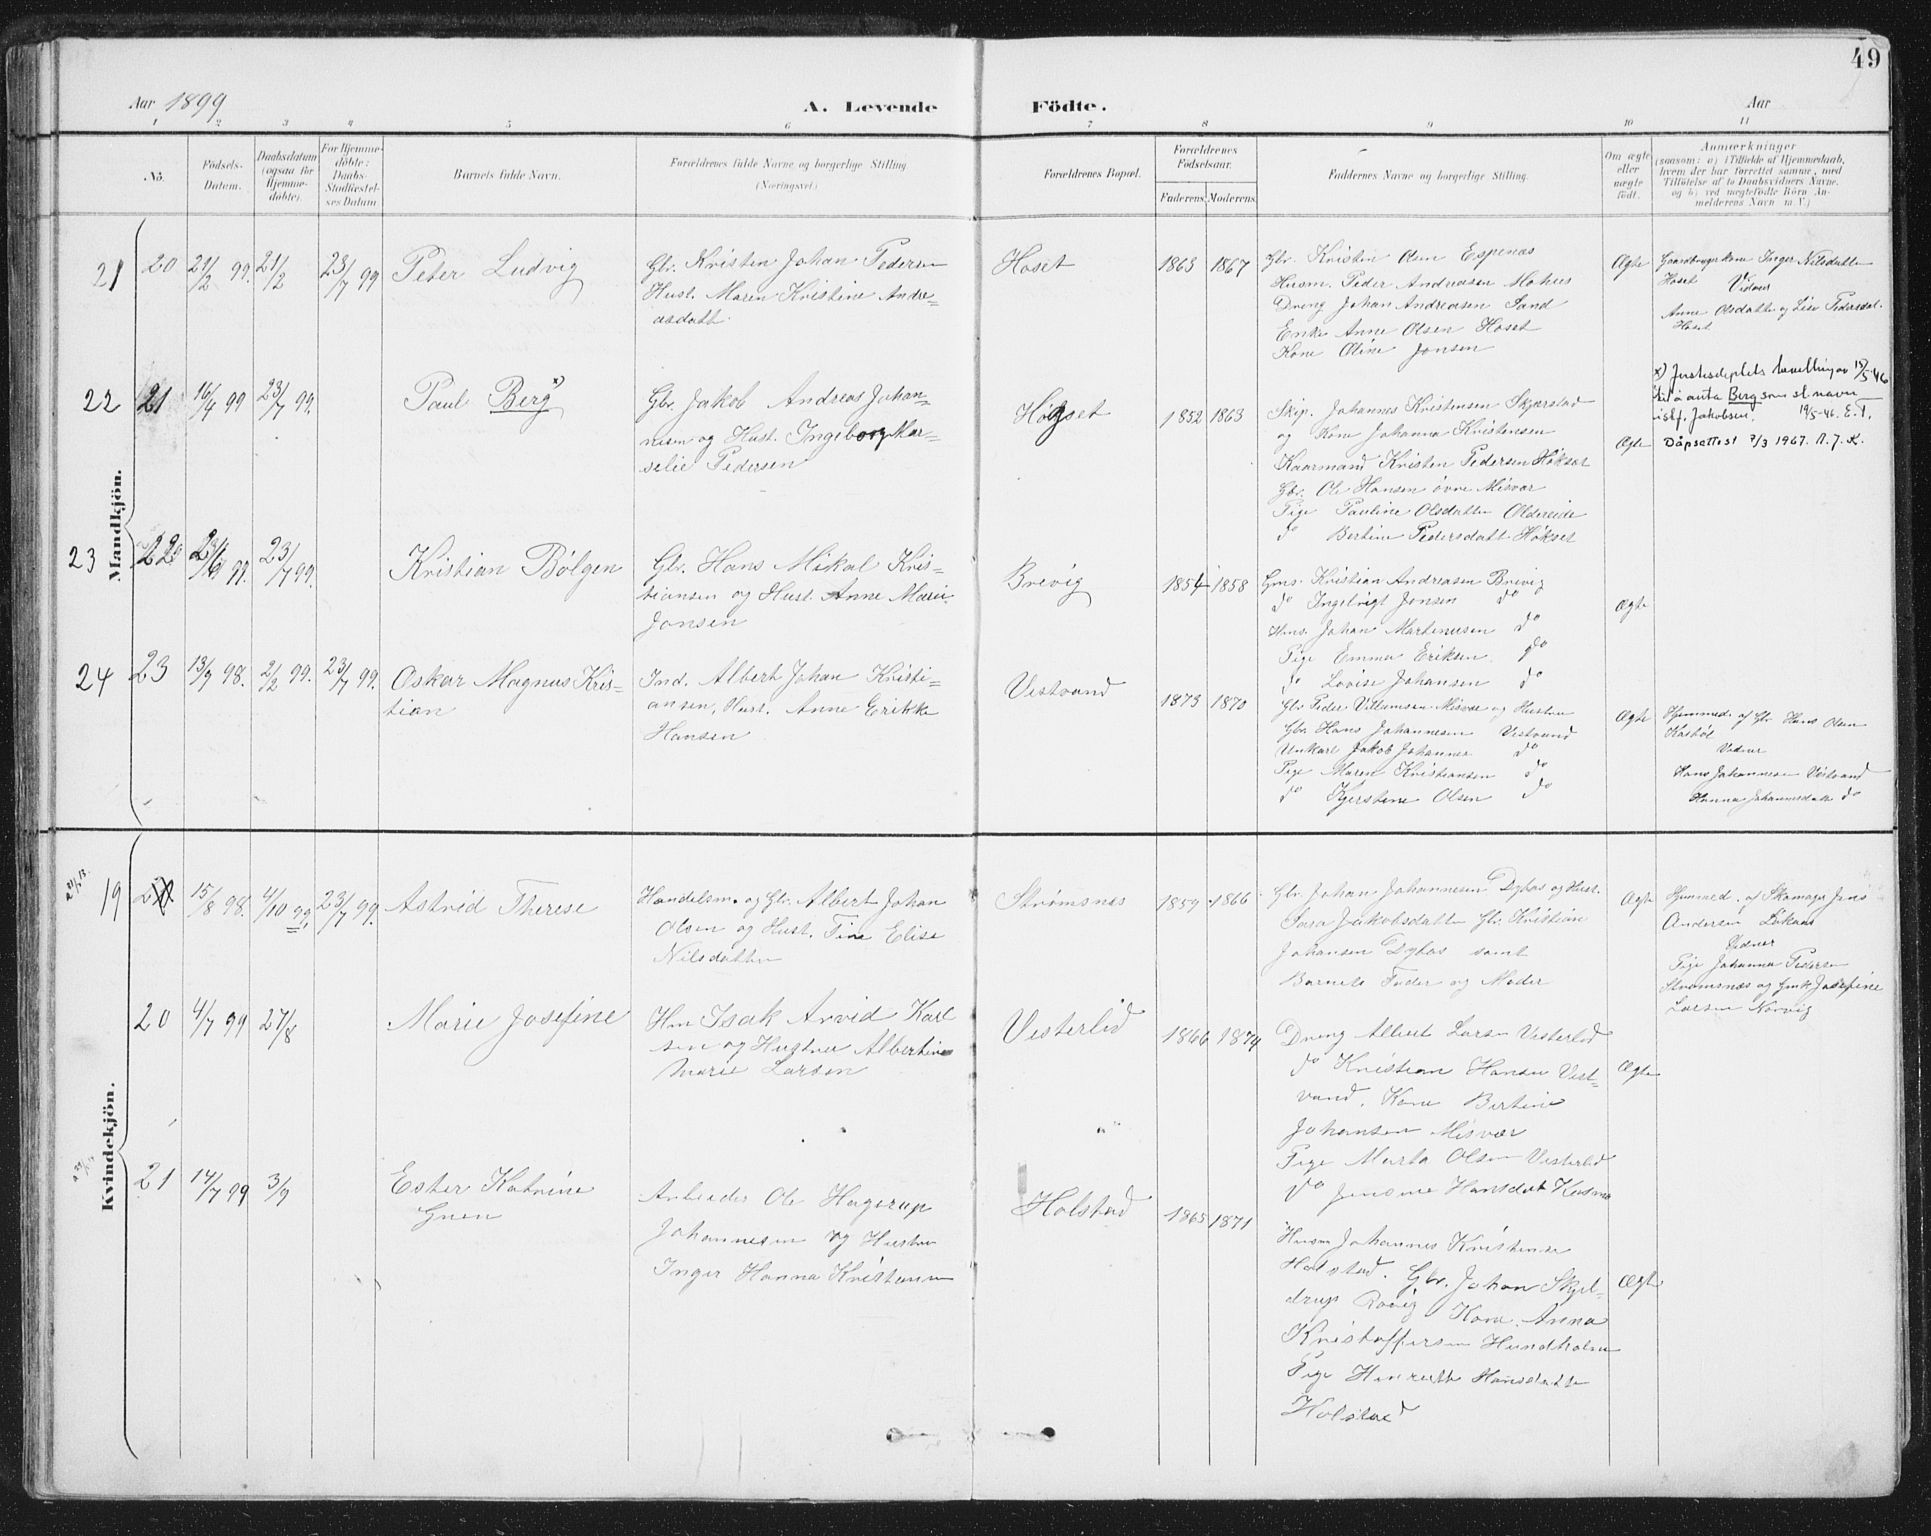 49
Aar 1899
A. Levende Födte.
Aar
1 2 3 4 5 6 7 8 9 10 11
No. Födsels-Datum. Daabsdatum (ogsaa for Hjemmedöbte). For Hjemmedöbte: Daabs-Stadfæstelses Datum Barnets fulde Navn. Forældrenes fulde Navne og borgerlige Stilling (Næringsvei). Forældrenes Bopæl. Forældrenes Födselsaar. Faderens Moderens Faddernes Navne og borgerlige Stilling. Om ægte eller uægte födt. Anmærkninger
(saasom: a) i Tilfælde af Hjemmedaab,
hvem der har forrettet samme, med
Tilföielse af to Daabsvidners Navne,
og b) ved uægtefödte Börn An-
melderens Navn m. V.)
Mandkjön.
21 20 21/2 99. 21/2 23/7 99 Peter Ludvig
Gbr. Kristen Johan Pedersen
Hust. Maren Kristine Andre-
asdatt.
Hoset 1863 1867
Gbr. Kristen Olsen Espenæs
Husm. Peder Andreasen Mohus
Dreng Johan Andreasen Sand
Enke Anne Olsen Hoset
Kone Oline Jonsen
Ægte
Gaardbrugerkone Inger Nilsdatter
Hoset Vidner
Anne Olsdatter og Lise Pedersdat.
Hoset
22 21 16/4 99 23/7 99. Paul Berg x)
Gbr. Jakob Andreas Johan-
nesen og Hust. Ingeborg Mar-
selie Pedersen
Høgset 1852 1863
Skip. Johannes Kristensen Skjærstad
og Kone Johanna Kristensen
Kaarmand Kristen Pedersen Høkset
Gbr. Ole Hansen øvre Misvær
Pige Pauline Olsdatter Oldereide
do Bertine Pedersdatt Høkset
Ægte
x) Justisdeptets bevilling av 15/5-46
til å anta Berg som sl.navn
istf. Jakobsen. 19/5-46. E.T.
Dåpsattest 7/3 1967. A.J.K.
23 22 99. 23/7 99. Kristian Bølgen
Gbr. Hans Mikal Kris-
tiansen og Hust. Anne Marie
Jonsen
Brevig 1854 1858
Gms. Kristian Andreasen Brevig
do Ingebrigt Jonsen do
Hms. Johan Martinusen do
Pige Emma Eriksen do
do Lovise Johansen do
Ægte
24 23 13/9 98. 2/2 99. 23/7 99. Oskar Magnus Kris-
tian
Ind. Albert Johan Kristi-
ansen, Hust. Anne Erikke
Hansen
Vestvand 1873 1870
Gbr Peder Villumsen Misvær og Hustru
Gbr. Hans Johannesen Vestvand
Unkarl Jakob Johannes do
Pige Maren Kristiansen do
do Kjerstine Olsen do
Ægte
Hjemmed. af Gbr Hans Olsen
Kalbøl
Vidner
Hans Johannesen Vestvand
Hanna Johannesdatt do
Kvindekjön.
19 15/8 98. 4/10 99. 23/7 99. Astrid Therese
Handelsm. og Gbr. Albert Johan
Olsen og Hust. Tine Elise
Nilsdatter
Strømsnes 1859 1866
Gbr. Johan Johannesen Dybos og Hust.
Sara Jakobsdatter Gbr. Kristian
Johansen Dybos samt
Barnets Fader og Moder
Ægte
Hjemmed. af Skomager Jens
Andersen Løkaas
Vidner
Pige Johanna Pedersen
Strømsnæs og Josefine
Larsen Nervig
20 4/7 99 27/8 Marie Josefine
Hm Isak Arvid Karl
sen og Hustru Albertine
Marie Larsen
Vesterlid 1866 1874
Dreng Albert Larsen Vesterlid
do Kristian Hansen Vest-
vand. Kone Bertine
Johansen Misvær
Pige Marta Olsen Vesterlid
do Jensine Hansdat
Ægte
21 14/7 99 3/9 Ester Katrine
Arbeider Ole Hagerup
Johannesen og Hustru
Inger Hanna Kristensen
Holstad 1865 1871
Husm Johannes Kristensen
Holstad. Gbr. Johan Skjel-
drup Kone Anna
Kristoffersen Hundholm
Pige Henrette Hansdatte
Holstad
Ægte